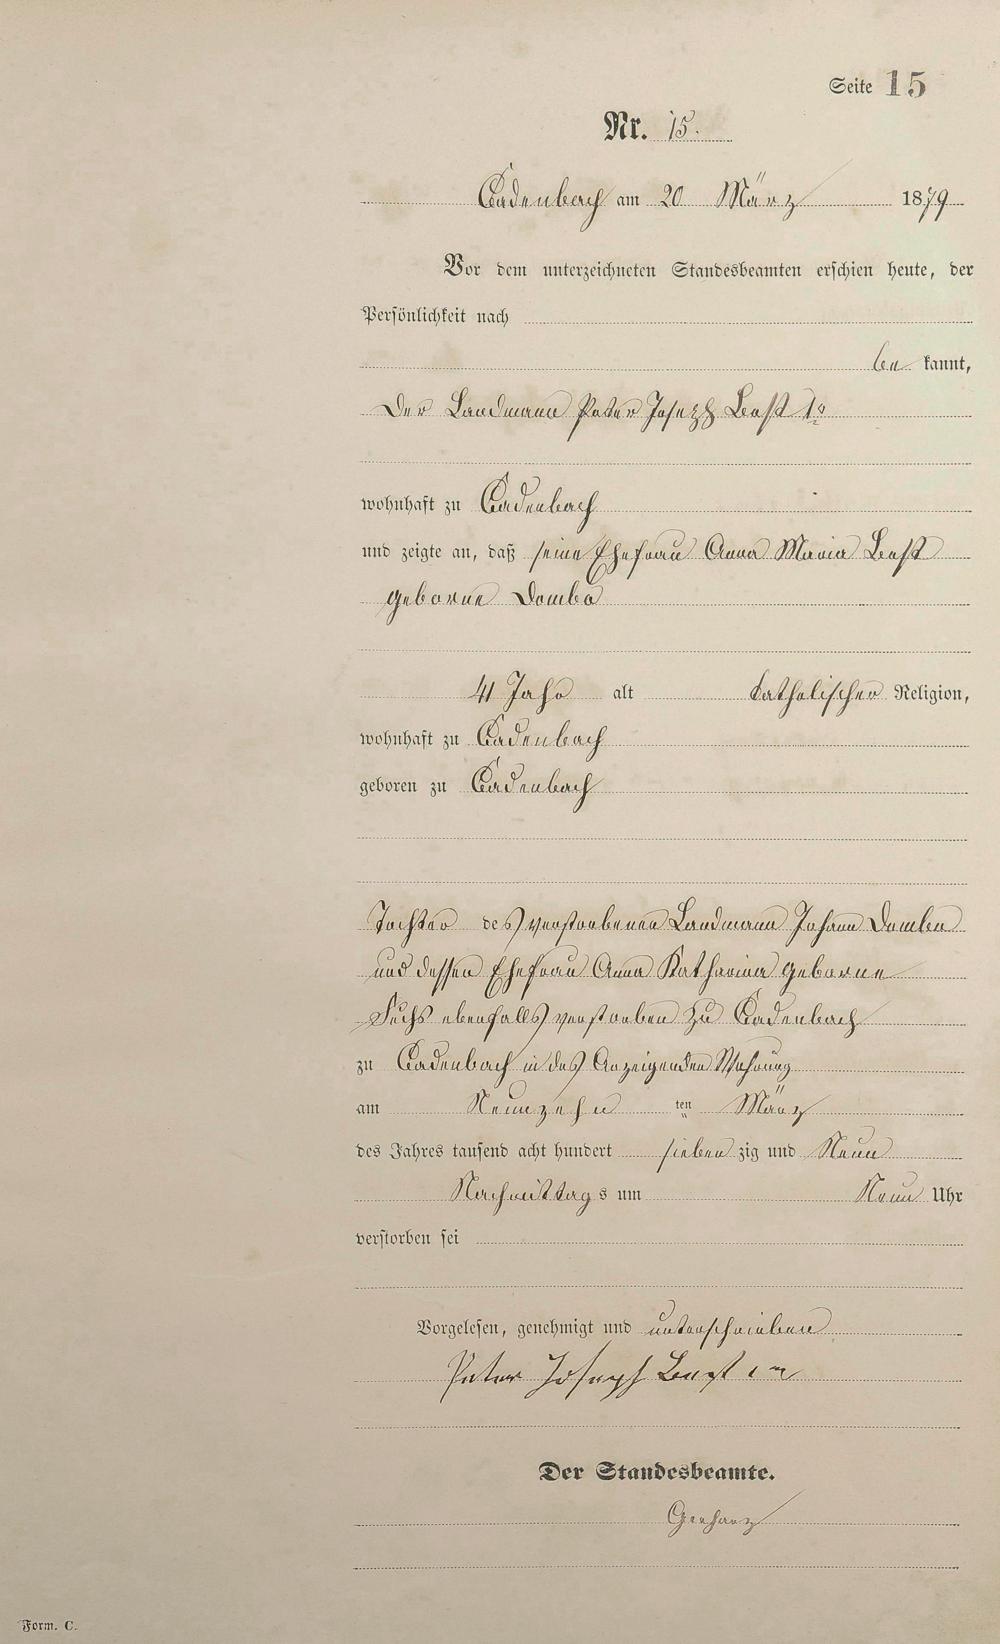 Seite 15
Nr. 15.
Cadenbach am 20 März 1879
Vor dem unterzeichneten Standesbeamten erschien heute, der
Persönlichkeit nach
be kannt,
Der Landmann Peter Joseph Best 1r
wohnhaft zu Cadenbach
und zeigte an, daß seine Ehefrau Anna Maria Best
geborne Dombo
41 Jahr alt katholischer Religion,
wohnhaft zu Cadenbach
geboren zu Cadenbach
Tochter des verstorbenen Landmann Johann
und dessen Ehefrau Anna Katharina geborne
Fuchs ebenfalls verstorben zu Cadenbach
zu Cadenbach in des Anzeigenden Wohnung
am Neunzehn ten März
des Jahres tausend acht hundert sieben zig und Neun
Nachmittag s um Neun Uhr
verstorben sei
Vorgelesen, genehmigt und unterschrieben
Peter Joseph Best
Der Standesbeamte.
Gerharz
Form. C.